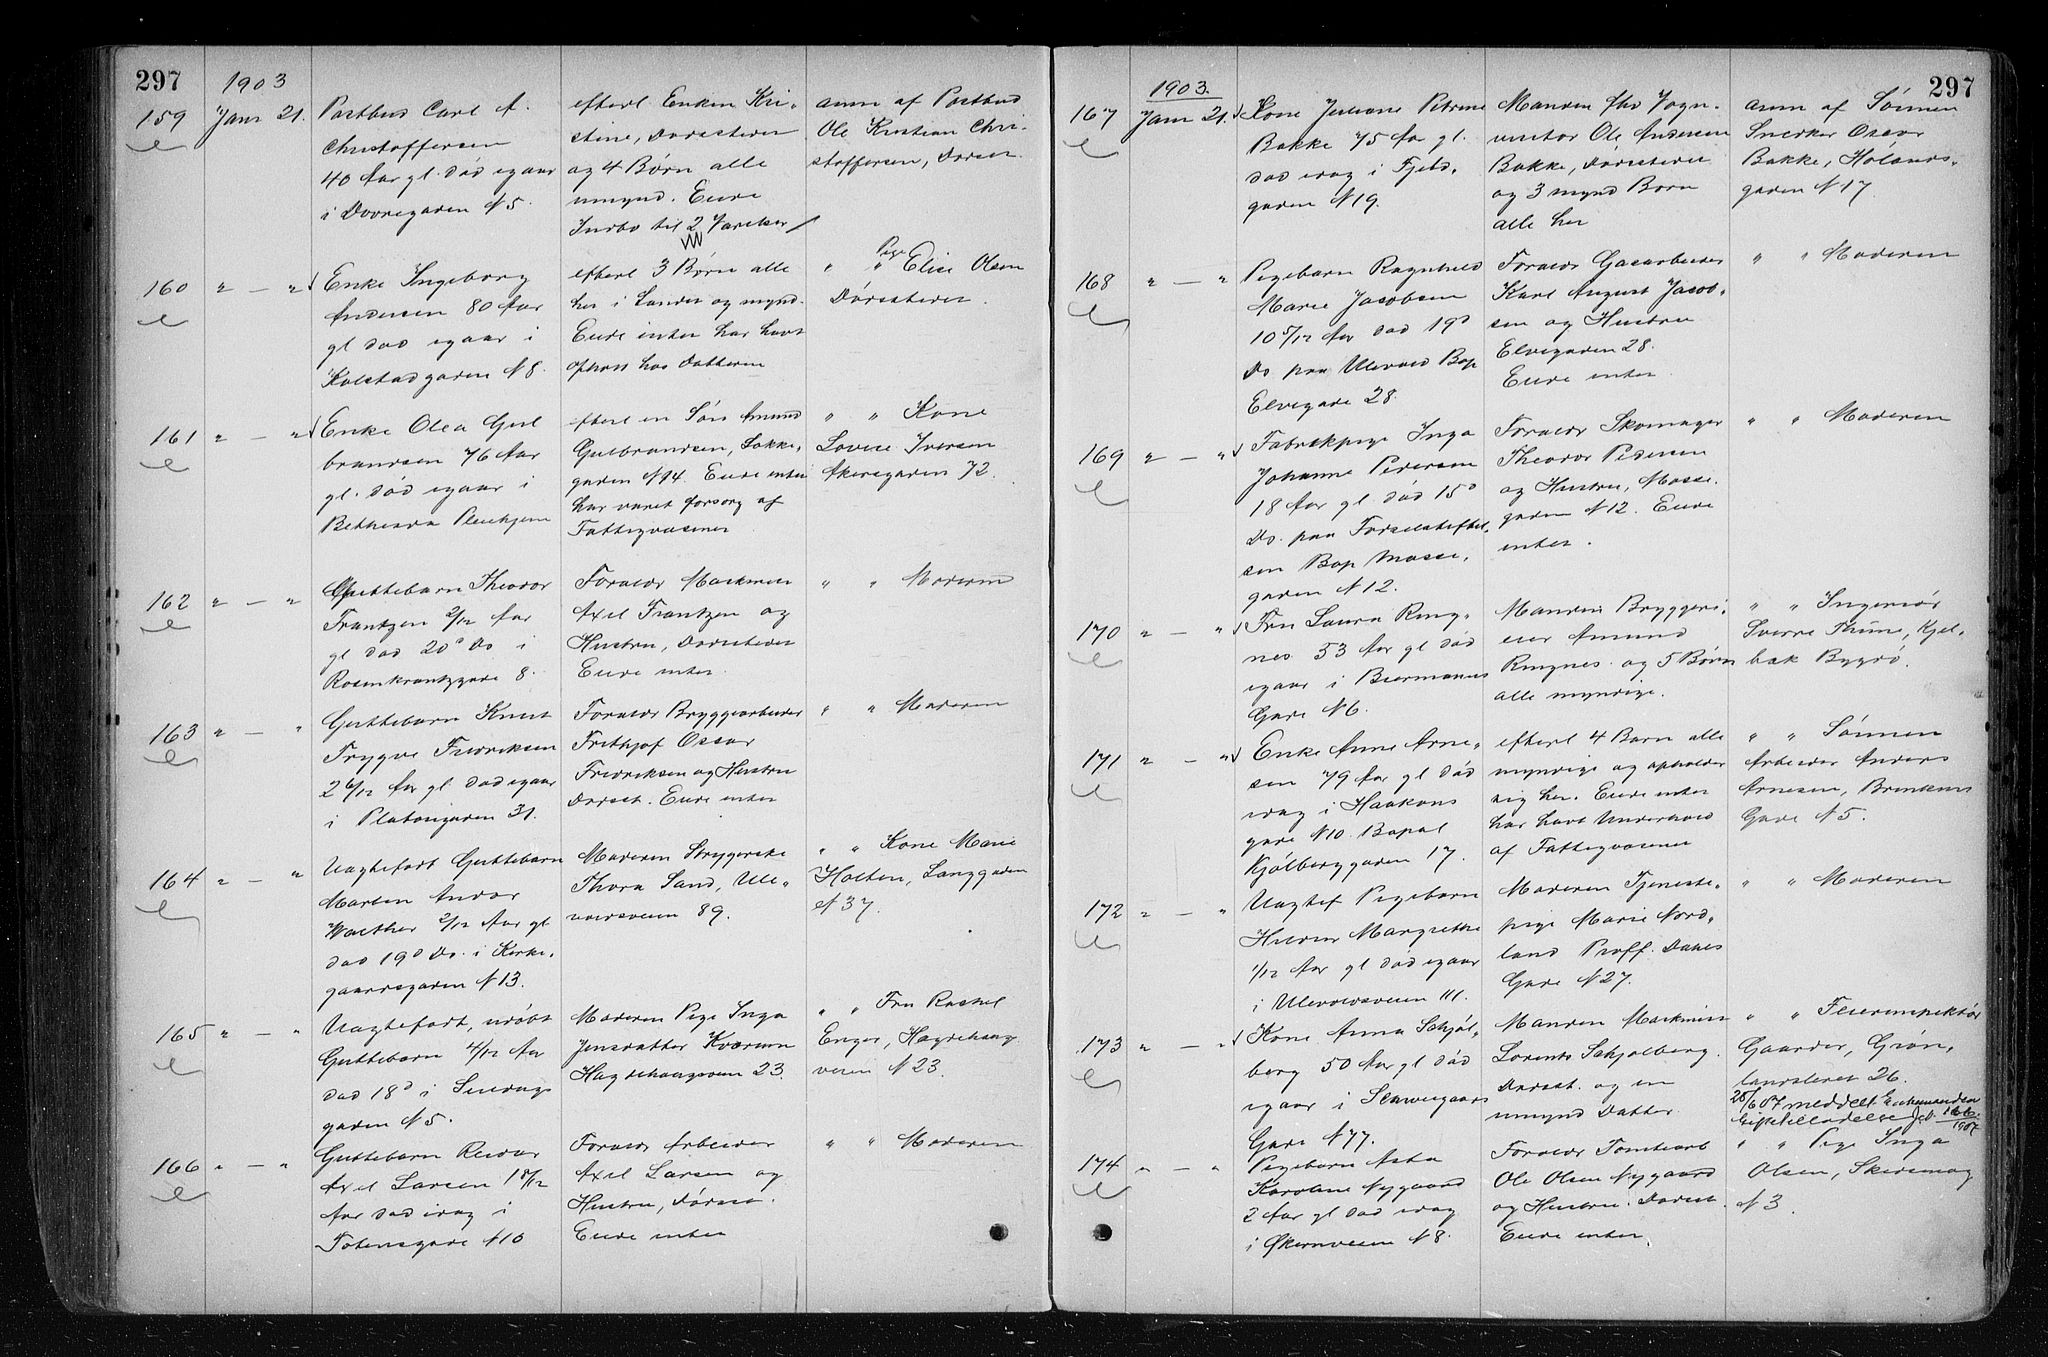 297
1903
159
Janr 21.
Postbud Carl A.
Christoffersen
40 Aar gl. død igaar
i Dovregaden N 5.
efterl Enken Kri-
stine, Dørsteder
og 4 Børn alle
umynd. Eiede
Indbo til 2 Værelser
anm af Postbud
Ole Kristian Chri-
stoffersen, Dørsn.
160
" — "
Enke Ingeborg
Andersen 80 Aar
gl død igaar i
Kolstadgaden N 8.
efterl 3 Børn alle
her i Landet og mynd.
Eiede intet har havt
Ophold hos Datteren
" " Pige Elise Olsen
Dørsteder.
161
" — "
Enke Olea Gul
brandsen 76 Aar
gl. død igaar i
Bethesda Pleiehjem
efterl en Søn Amund
Gulbrandsen, Lakke-
gaden N 14. Eiede intet
har været forsørg af
Fattigvæsenet
" " Kone
Lovise Iversen
Akersgaden 72.
162
" — "
Guttebarn Theodor
Frantzen 2/12 Aar
gl død 20d Ds i
Rosenkrantzgade 8.
Forældr Maskinist
Axel Frantzen og
Hustru, Dørsteder
Eiede intet.
" " Moderen
163
" — "
Guttebarn Knut
Trygve Fredriksen
2 6/12 Aar gl. død igaar
i Platousgaden 31.
Forældr Bryggearbeider
Frithjof Oscar
Fredriksen og Hustru
Dørsst. Eiede intet
" " Moderen
164
" — "
Uægtefødt Guttebarn
Morten Andor
Walther 2/12 Aar gl
død 19d Ds. i Kirke-
gaardsgaden N 13.
Moderen Strygerske
Thora Sand, Ule-
voldsveien 89.
" " Kone Marie
Holten, Langgaden
N 37.
165
" — "
Uægtefødt, udøbt
Guttebarn 4/12 Aar
død 18d i
gaden N 5.
Moderen Pige Inga
Jensdatter
Hagdehaugsveien 23.
" " Fru Rachel
Enger, Hagdehaug
veien N 23.
166
" — "
Guttebarn Reidar
Axel Larsen 1 8/12
Aar død idag i
Totensgade N 10
Forældr Arbeider
Axel Larsen og
Hustru, Dørsst.
Eiede intet
" " Moderen
297
1903.
167
Janr 21.
Kone Juliane Petrine
Bakke 75 Aar gl.
død idag i Fjeld-
gaden N 19.
Manden fhv Vogn-
Ole Andersen
Bakke, Dørsteder
og 3 mynd Børn
alle her
anm af Sønnen
Snedker Oscar
Bakke, Hølands-
gaden N 17.
168
" — "
Pigebarn Ragnhild
Marie Jacobsen
10 5/12 Aar død 19d
Ds paa Ulevold Bop
Elvegade 28.
Forældr Gasarbeider
Karl August Jacob-
sen og Hustru
Elvegaden 28.
Eiede intet.
" " Moderen
169
" — "
Fabrikpige Inga
Johanne Pedersen
18 Aar gl. død 15d
Ds. paa Fødselsstiftel-
sen Bop Mosse-
gaden N 12.
Forældr Skomager
Theodor Pedersen
og Hustru, Mosse-
gaden N 12. Eiede
intet.
" " Moderen
170
" — "
Fru Laura Ring-
nes 53 Aar gl død
igaar i Biermanns
Gade N 6.
Manden Bryggeri-
eier Amund
Ringnes og 5 Børn
alle myndige.
" " Ingeniør
Sverre Thune, Kjel-
bæk Bygdø.
171
" — "
Enke Anne Arne-
sen 79 Aar gl død
idag i Haakons
gade N 10. Bopæl
Kjølberggaden 17.
efterl 4 Børn alle
myndige og opholder
sig her. Eiede intet
har havt Underhold
af Fattigvæsenet
" " Sønnen
Arbeider Anders
Arnesen, Brinkens
Gade N 5.
172
" — "
Uægtef Pigebarn
Hildur Margrethe
1/12 Aar gl død igaar
i Ulevoldsveien 111.
Moderen Tjeneste-
pige Marie Nord-
land Proff. Dahls
Gade N 27.
" " Moderen
173
" — "
Kone Anna Schjøl-
berg 50 Aar gl død
igaar i Schweigaards
Gade N 77.
Manden Maskinist
Lorents Schjølberg.
Dørsst. og en
umynd Datter.
" " Feierinspektør
Gaarder, Grøn-
landsleret 26.
28/6 07 meddelt Enkemanden
Giftetilladelse Jr. 166/1907
174
" — "
Pigebarn Asta
Karoline Nygaard
2 Aar gl død idag
i Økernveien N 8.
Forældr Tomtearb
Ole Olsen Nygaard
og Hustru. Dørsst.
Eiede intet.
" " Pige Inga
Olsen,
N 3.